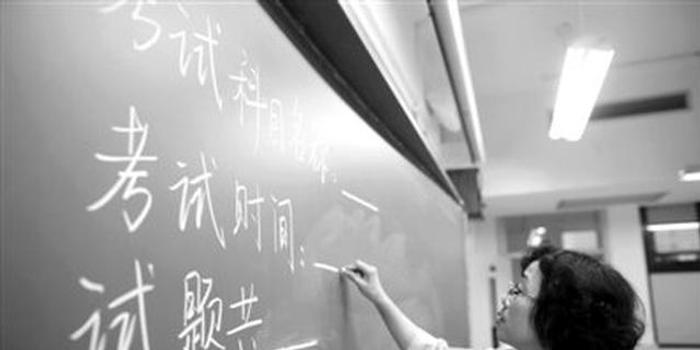 考试科目名称：
考试时间：
试题共